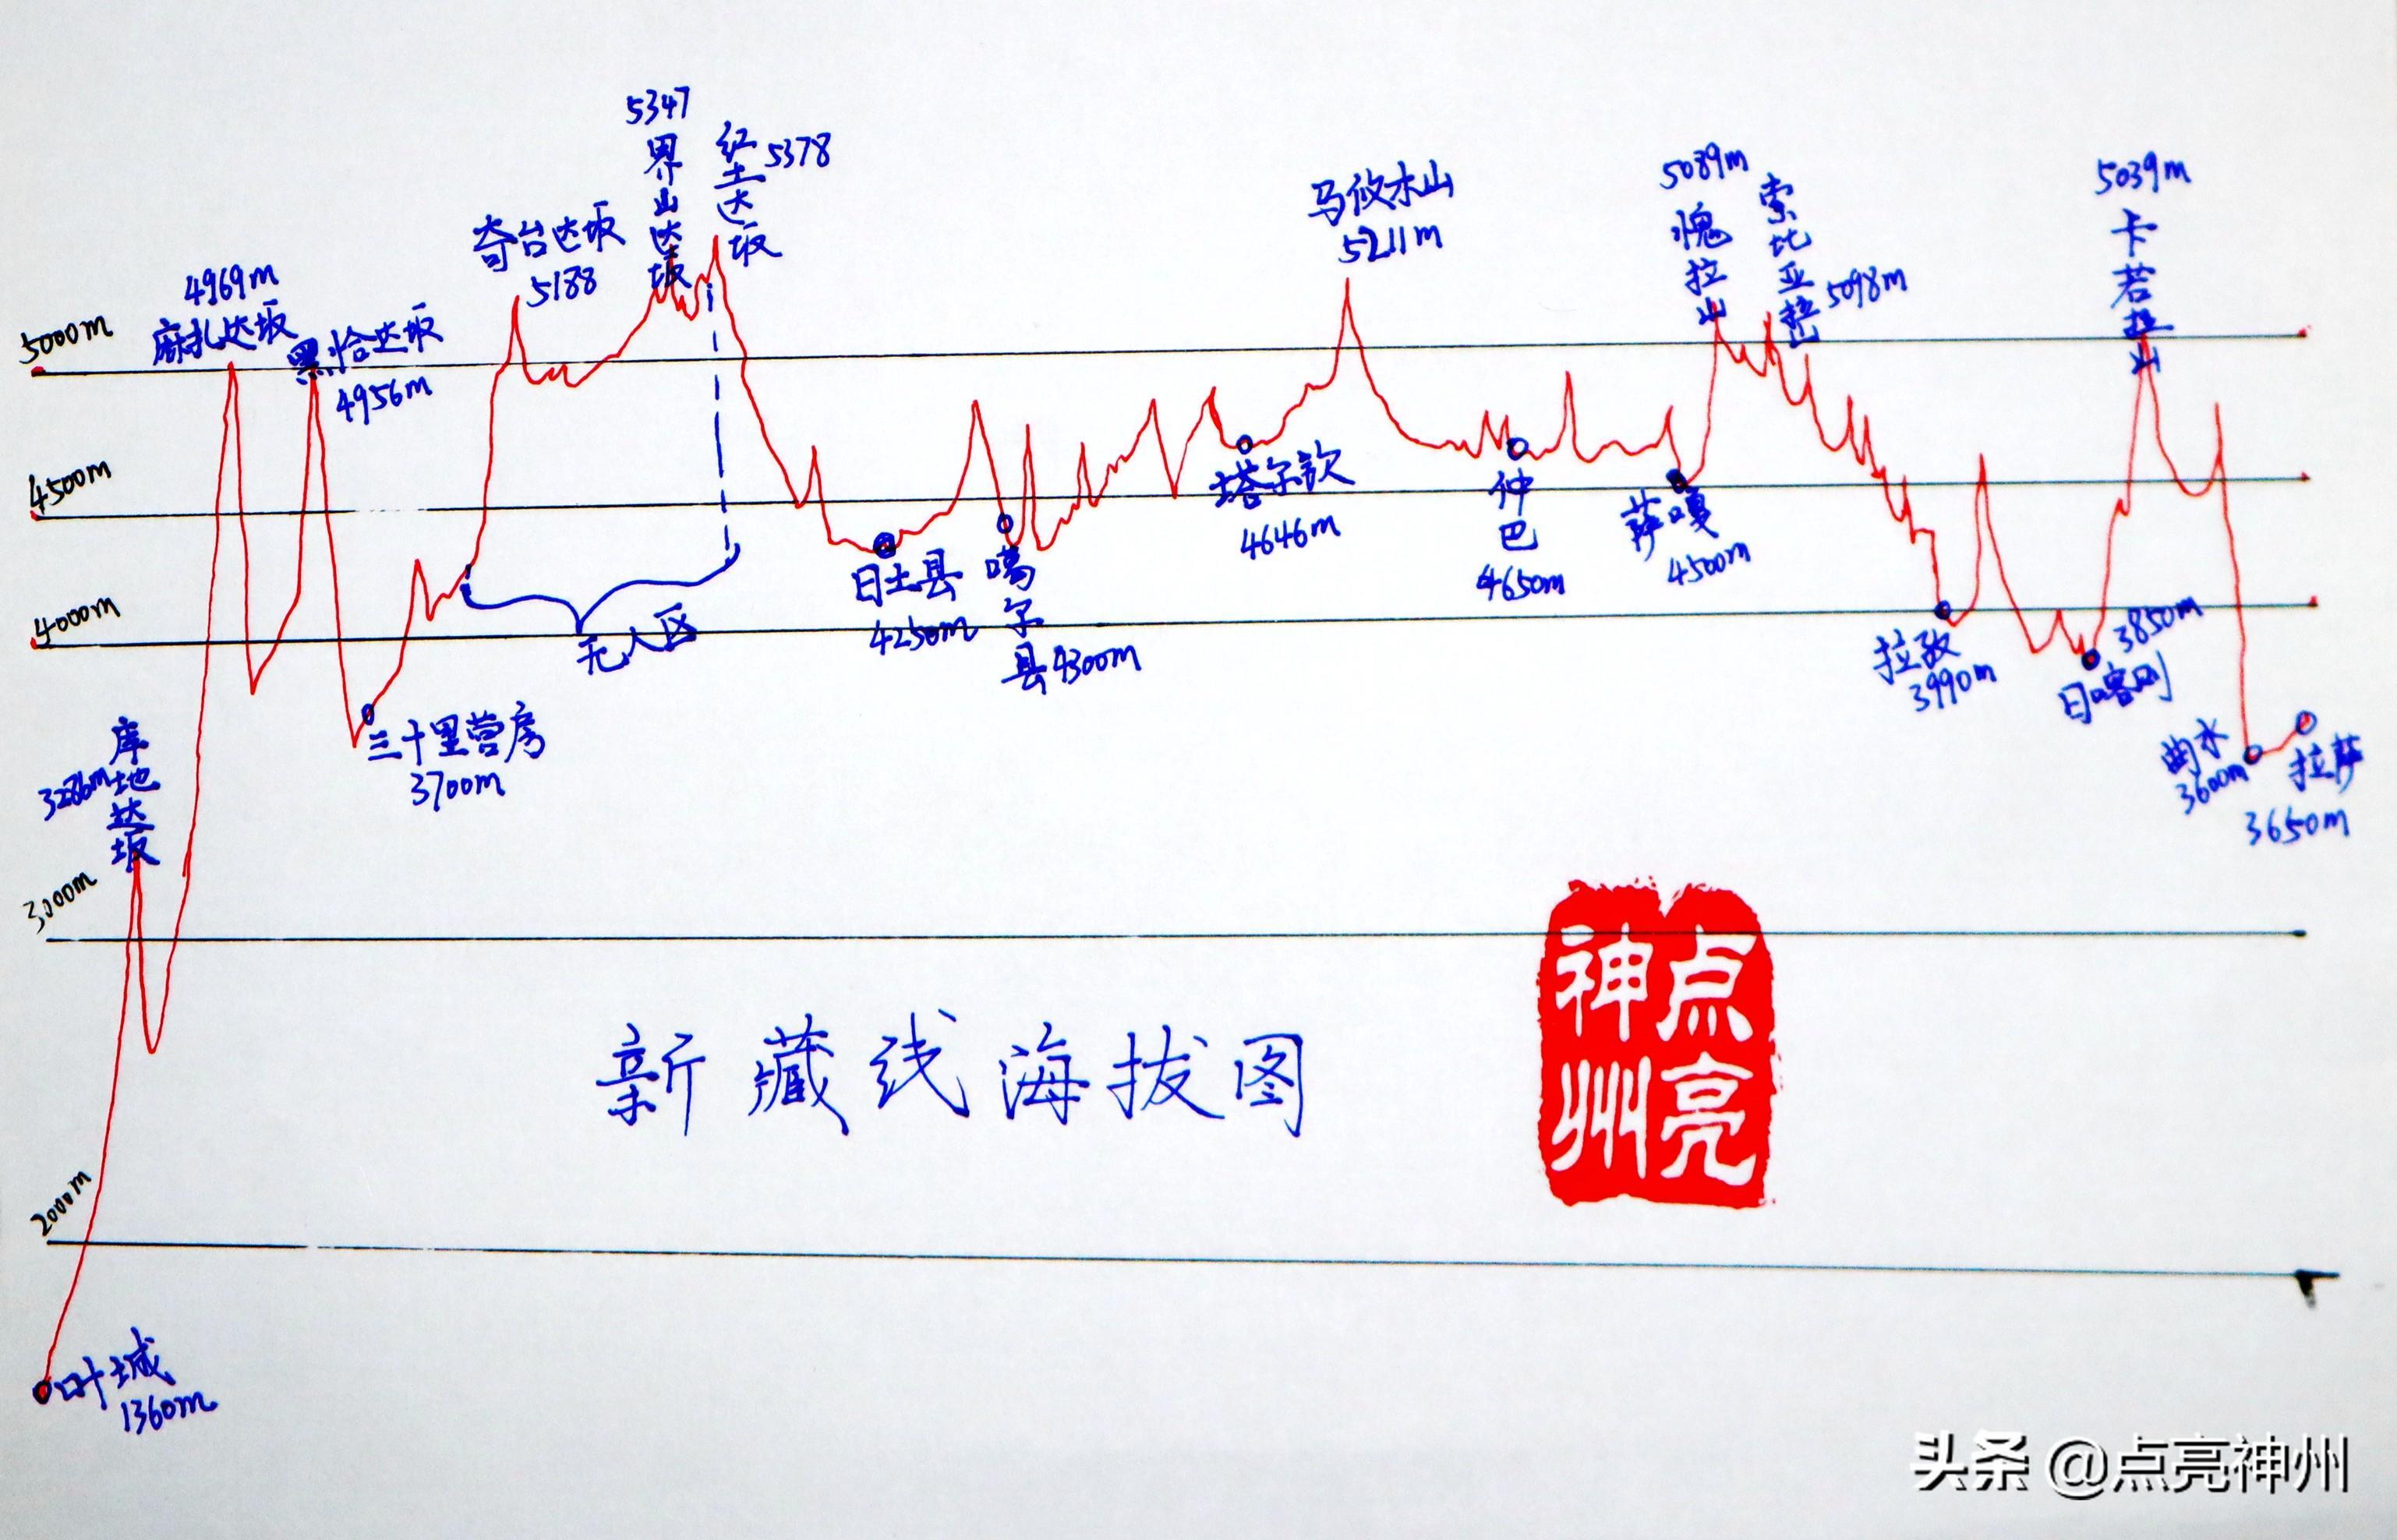 5000m
4500m
4000m
3000m
2000m
叶城
1360m
库地达坂
4969m
麻扎达坂
黑恰达坂
4956m
三十里营房
3700m
奇台达坂
5188
5347
界山达坂
红土达坂
5378
无人区
日土县
4250m
噶尔县
4300m
塔尔钦
4646m
马攸木山
5211m
仲巴
4650m
萨嘎
4500m
5089m
愧拉山
索比亚拉山
5098m
拉孜
3990m
3850m
日喀则
5039m
卡若拉山
曲水
3600m
拉萨
3650m
新藏线海拔图
点亮
神州
头条 @点亮神州